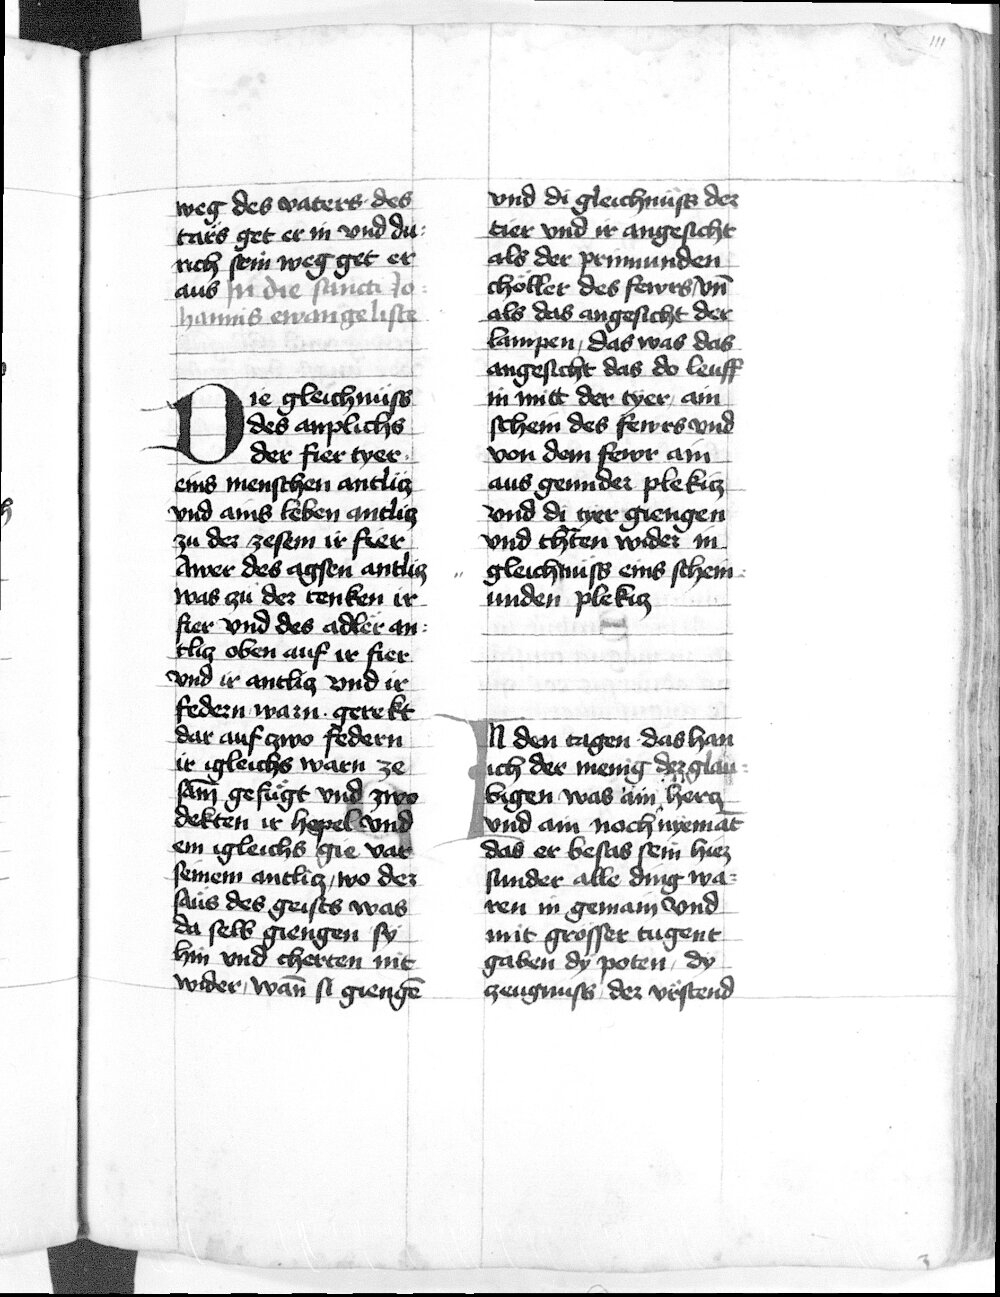 111
weg des vaters des
tars get er in vnd du:
rich sein weg get er
aus In die sancti Jo:
hannis ewangeliste
Die gleichnüss
des anplichs
der fier tyer.
eins menschen antlicz
vnd ains leben antlicz
zu der zesem ir fier
Awer des agsen antlicz
was zu der tenken ir
fier vnd des adler an:
tlicz oben auf ir fier
vnd ir antlicz vnd ir
federn warn. gerekt
dar auf zwo federn
ir igleichs warn ze
sam̄ gefügt vnd zwo
dekten ir hepel vnd
em igleichs gie var
seinem antlicz, wo der
saus des geists was
da selb giengen sy
hin vnd cherten nit
wider, wan̄ si giengē
vnd di gleichnüss der
tier vnd ir angesicht
als der prinnunden
chöller des fewrs vn̄
als das angesicht der
lampen, das was das
angesicht das do leuff
in mitt der tyer, ain
schein des fewrs vnd
von dem fewr ain
aus gennder plekicz
vnd di tyer giengen
vnd chtē̄n wider in
gleichniss eins schein:
unden plekicz
IN den tagen das han
ich der menig der glau:
bigen was ain hercz
vnd ain noch nyemāt
das er besas sein hiez
sunder alle ding wa:
ren in gemain vnd
mit grosser tugent
gaben dy poten, dy
zeugnuss der vrstend
3